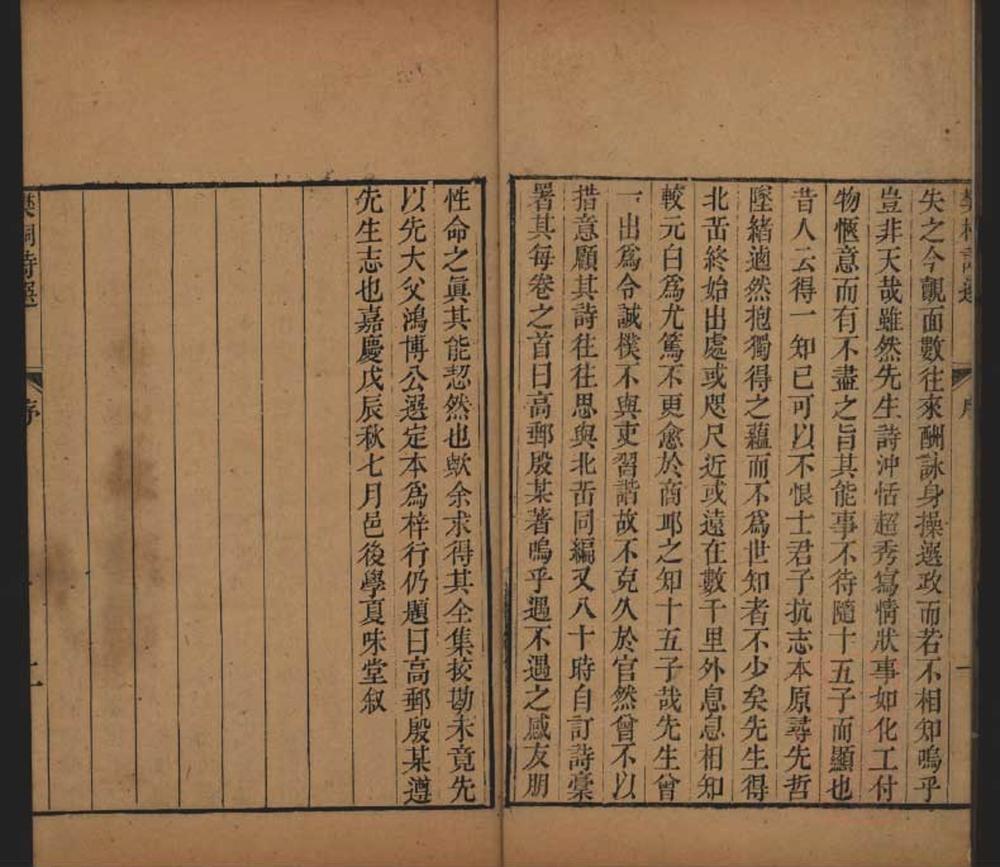 失之今覿面數往來酬詠身操選政而若不相知嗚乎
豈非天哉雖然先生詩沖恬超秀寫情狀事如化工付
物愜意而有不盡之旨其能事不待隨十五子而顯也
昔人云得一知已可以不恨士君子抗志本原尋先哲
墜緒逌然抱獨得之蘊而不爲世知者不少矣先生得
北嵒終始出處或咫尺近或遠在數千里外息息相知
較元白爲尤篤不更愈於商邱之知十五子哉先生曾
一出爲令誠樸不與吏習諧故不克久於官然曾不以
措意願其詩往往思與北嵒同編又八十時自訂詩稾
署其每卷之首曰高郵殷某著嗚乎遇不遇之感友朋
性命之眞其能恝然也歟余求得其全集挍勘未竟先
以先大父鴻博公選定本爲梓行仍題曰高郵殷某遵
先生志也嘉慶戊辰秋七月邑後學夏味堂叙
詩選
序
二
序
一